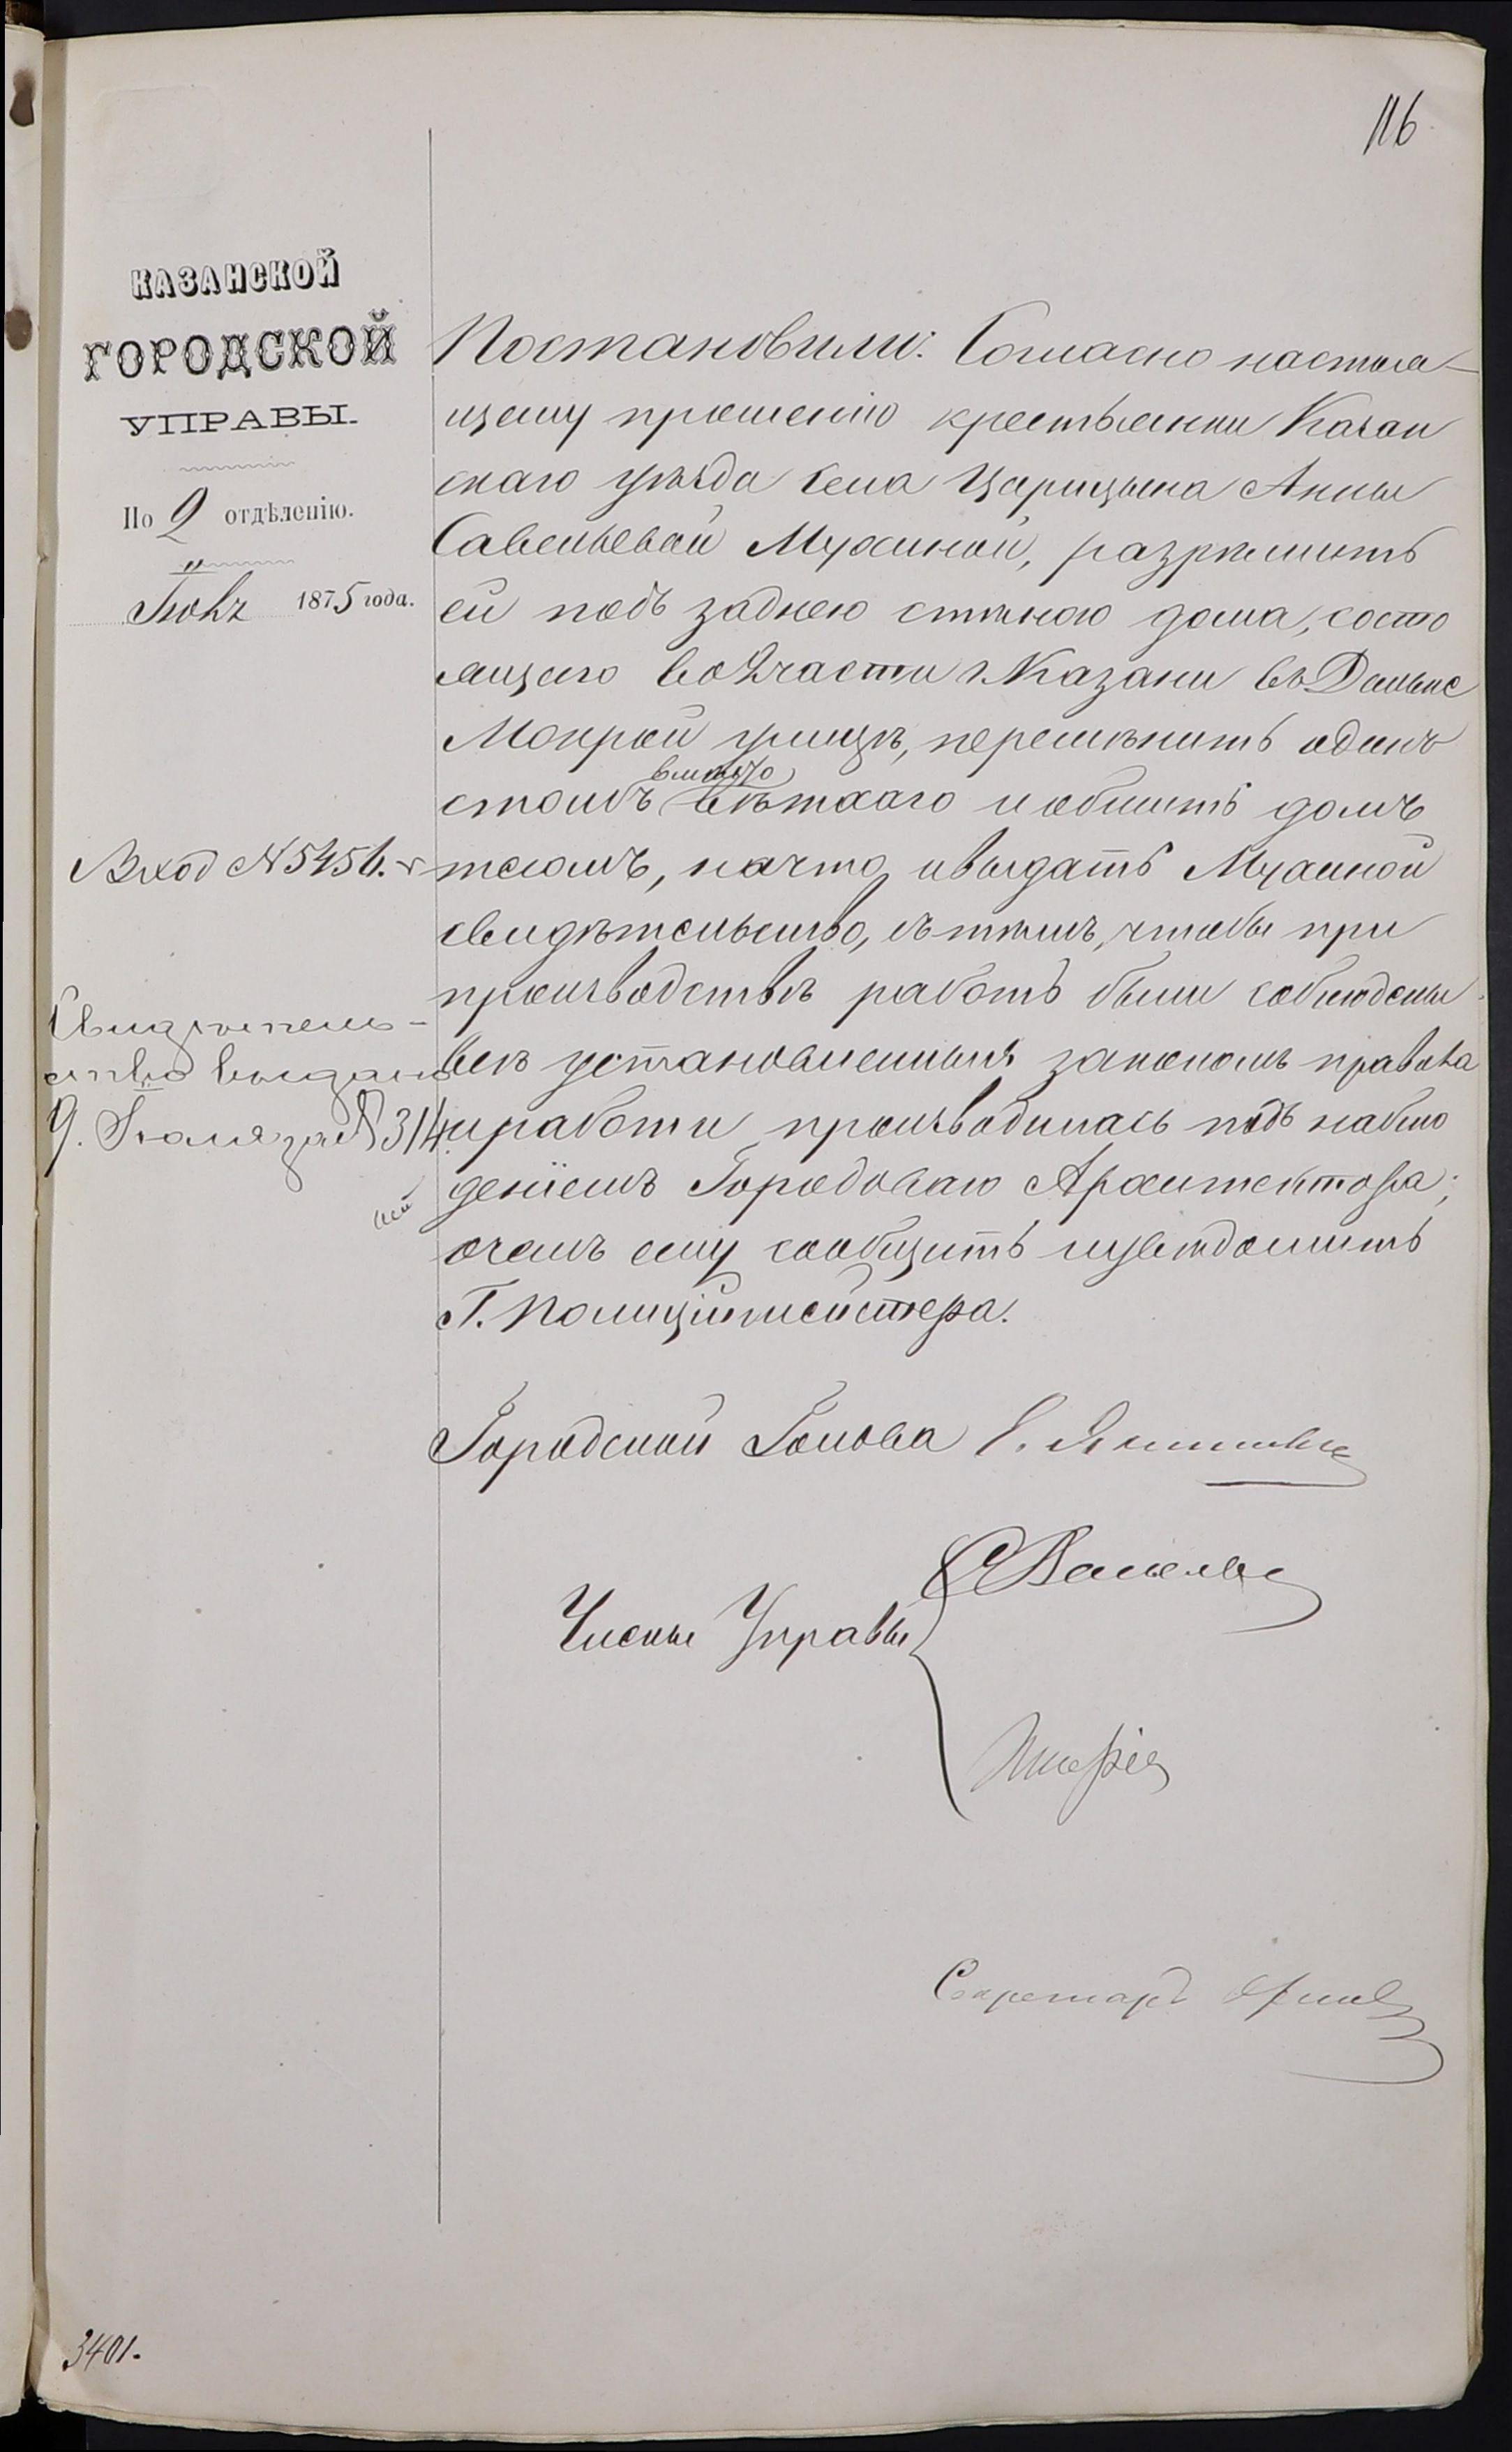 116
КАЗАНСКОЙ
ГОРОДСКОЙ
УПРАВЫ.
По 2 отдѣленію.
"
1875 года.
Постановили: Согласно настоя-
щему прошенію крестьянки Казан
скаго уѣзда села Царицына Анны
Савельевой Мухиной, разрѣшить
ей подъ заднею стѣною дома, состо
ящаго во 2 части г. Казани въ Дальне
Мокрой улицѣ, перемѣнить одинъ
вмѣсто
столбъ вѣтхаго и обшить домъ
Вход № 5456.
тесомъ, на что и выдать Мухиной
свидѣтельство, съ тѣмъ, чтобы при
производствѣ работъ были соблюдены
Свидѣтель-
ство выдано
9. Іюля за № 314
всѣ установленныя закономъ правила
и работы производилась подъ наблю
деніемъ Городоваго Архитектора;
о чемъ ему сообщить и увѣдомить
Г. Полиціймейстера.
Городской Голова Е. Янишевск
Члены Управы
Секретарь
3401.